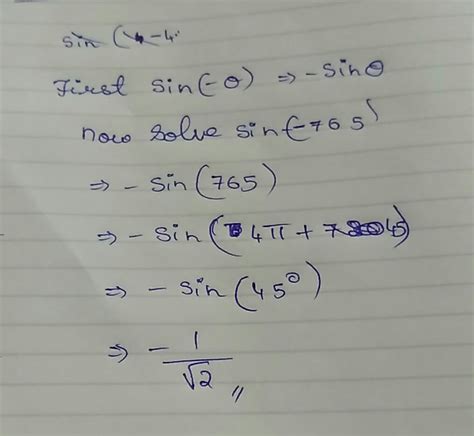 sin (
First sin(-θ) ⇒ -sinθ
now solve sin(-765)
⇒ - sin(765)
⇒ - sin(4π + 45)
⇒ - sin(45°)
⇒ - 1/√2 //